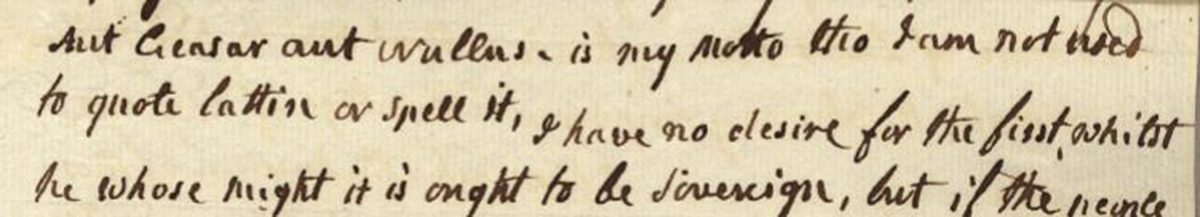 Aut Ceasar aut nullus - is my Motto tho I am not used
to quote lattin or spell it, I have no desire for the first, whilst
he whose might it is ought to be sovereign, but if the people